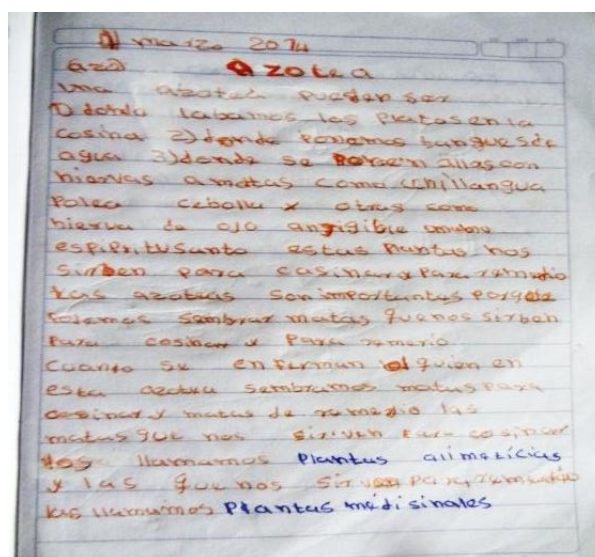 marzo 2014
Azotea
una azotea pueden ser
1) donde labamos los Platos en la
cosina 2) donde Ponemos tanques de
agua 3) donde se Ponen allas con
hiervas o matas como chillangua
Poleo cebolla y otras como
hierva de ojo
espiritusanto estas Plantas nos
sirben para casinar y Para remedio
Las azoteas son importantes Porque
Podemos Sembrar matas que nos sirben
Para cosinar y Para remerio
Cuando se enferman alguien en
esta azotea sembramos matas para
cosinar y matas de remedio las
matas que nos sirven Para cosinar
los llamamos Plantas alimeticias
y las que nos sirven Para remedio
las llamamos Plantas medisinales